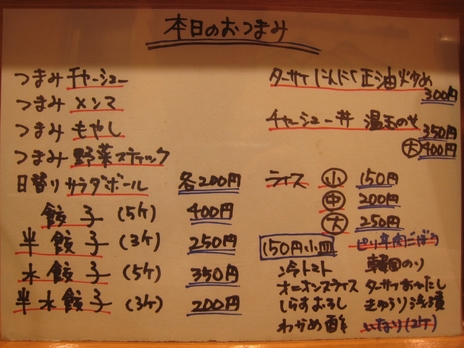 本日のおつまみ
つまみ チャーシュー
つまみ メンマ
つまみ もやし
つまみ 野菜スティック
日替り サラダボール 各200円
餃子 (5ケ) 400円
半餃子 (3ケ) 250円
水餃子 (5ケ) 350円
半水餃子 (3ケ) 200円
ターサイ にんにく正油炒め
300円
チャーシュー丼 温玉のせ
350円
大 400円
ライス 小 150円
中 200円
大 250円
150円小皿
ピリ辛肉ごぼう
冷トマト 韓国のり
オニオンスライス ターサイおひたし
しらすおろし きゅうり浅漬
わかめ酢 いなり(2ケ)